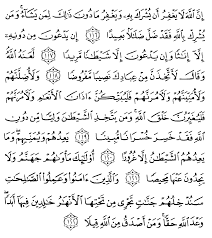 إِنَّ ٱللَّهَ لَا يَغْفِرُ أَن يُشْرَكَ بِهِۦ وَيَغْفِرُ مَا دُونَ ذَٰلِكَ لِمَن يَشَآءُ وَمَن
يُشْرِكْ بِٱللَّهِ فَقَدْ ضَلَّ ضَلَٰلًۢا بَعِيدًا إِن يَدْعُونَ مِن دُونِهِۦٓ
إِلَّآ إِنَٰثًا وَإِن يَدْعُونَ إِلَّا شَيْطَٰنًا مَّرِيدًا لَّعَنَهُ ٱللَّهُ
وَقَالَ لَأَتَّخِذَنَّ مِنْ عِبَادِكَ نَصِيبًا مَّفْرُوضًا وَلَأُضِلَّنَّهُمْ
وَلَأُمَنِّيَنَّهُمْ وَلَأٓمُرَنَّهُمْ فَلَيُبَتِّكُنَّ ءَاذَانَ ٱلْأَنْعَٰمِ وَلَأٓمُرَنَّهُمْ
فَلَيُغَيِّرُنَّ خَلْقَ ٱللَّهِ وَمَن يَتَّخِذِ ٱلشَّيْطَٰنَ وَلِيًّا مِّن دُونِ
ٱللَّهِ فَقَدْ خَسِرَ خُسْرَانًا مُّبِينًا يَعِدُهُمْ وَيُمَنِّيهِمْ وَمَا
يَعِدُهُمُ ٱلشَّيْطَٰنُ إِلَّا غُرُورًا أُو۟لَٰٓئِكَ مَأْوَىٰهُمْ جَهَنَّمُ وَلَا
يَجِدُونَ عَنْهَا مَحِيصًا وَٱلَّذِينَ ءَامَنُوا۟ وَعَمِلُوا۟ ٱلصَّٰلِحَٰتِ
سَنُدْخِلُهُمْ جَنَّٰتٍ تَجْرِى مِن تَحْتِهَا ٱلْأَنْهَٰرُ خَٰلِدِينَ فِيهَآ أَبَدًا
وَعْدَ ٱللَّهِ حَقًّا وَمَنْ أَصْدَقُ مِنَ ٱللَّهِ قِيلًا